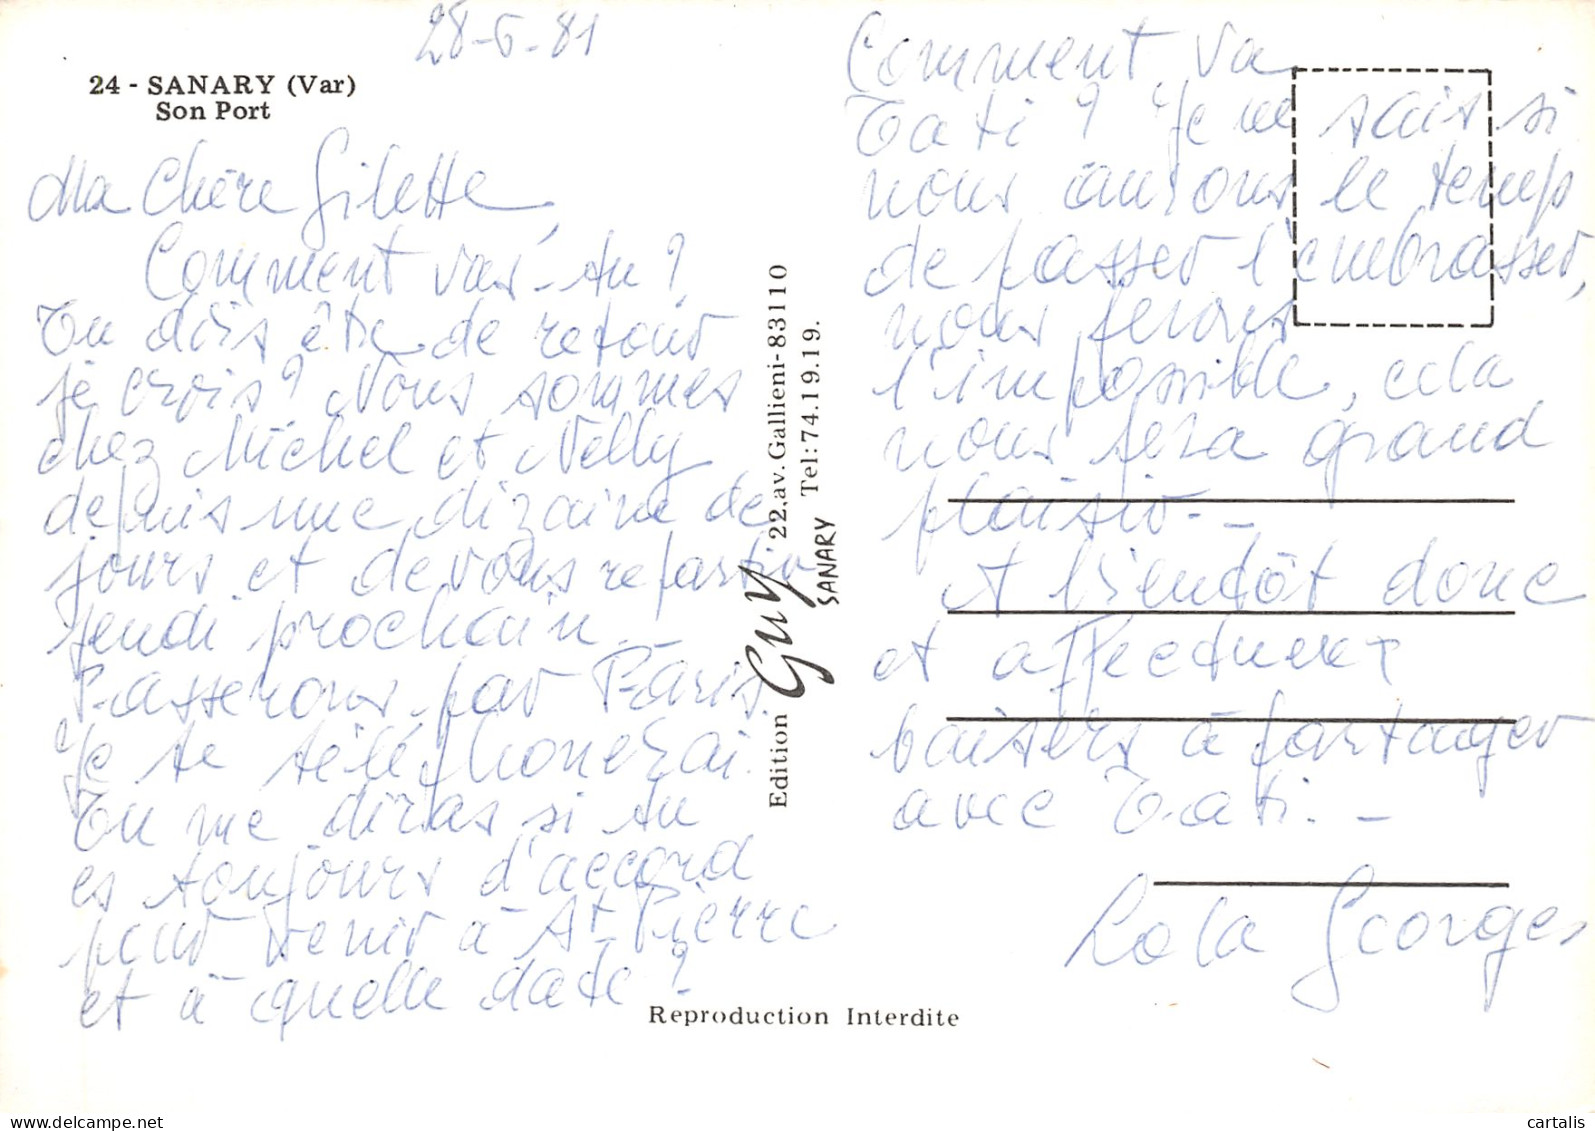 28-6-81
24 - SANARY (Var)
Son Port
Ma Chère Gilette,
Comment vas-tu ?
Tu dois être de retour
je crois ? Nous sommes
chez Michel et Nelly
depuis une dizaine de
jours et devons repartir
jeudi prochain. -
Passerons par Paris.
Je te téléphonerai.
Tu me diras si tu
es toujours d'accord
pour venir à St Pierre
et à quelle date ?
Edition Guy 22,av. Gallieni-83110
SANARY Tel: 74.19.19.
Reproduction Interdite
Comment va
Tati ? Je ne sais si
nous aurons le temps
de passer l'embrasser,
nous ferons
l'impossible, cela
nous fera grand
plaisir. -
A bientôt donc
et affectueux
baisers à partager
avec Tati. -
Lola Georges
cartalis
www.delcampe.net